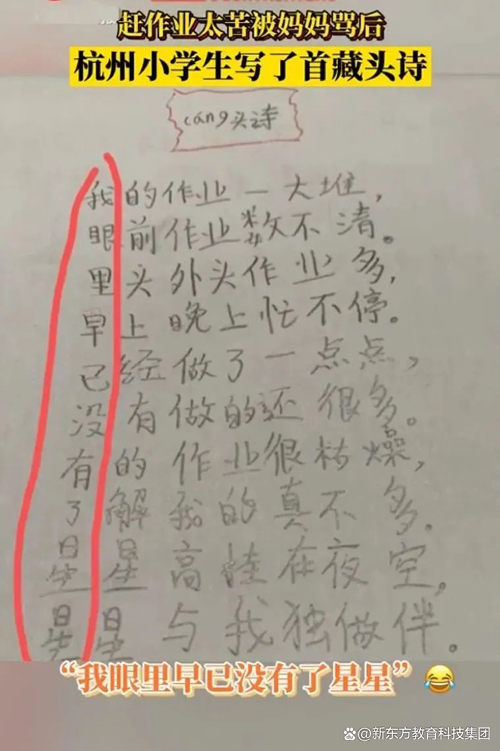 赶作业太苦被妈妈骂后
杭州小学生写了首藏头诗
cáng头诗
我的作业一大堆，
眼前作业数不清。
里头外头作业多，
早上晚上忙不停。
已经做了一点点，
没有做的还很多。
有的作业很枯燥，
了解我的真不多。
星星高挂在夜空，
星星与我独做伴。
“我眼里早已没有了星星”😂
@新东方教育科技集团